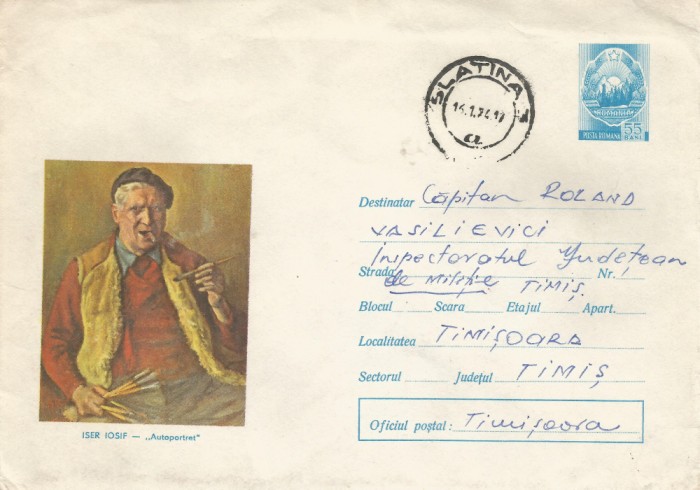 SLATINA
16.1.74.17
a
ROMANIA
POSTA ROMANA
55 BANI
Destinatar Căpitan ROLAND
VASILIEVICI
Inspectoratul Județean
Strada de Miliție TIMIȘ. Nr.
Blocul Scara Etajul Apart.
Localitatea TIMIȘOARA
Sectorul Județul TIMIȘ
Oficiul poștal: Timișoara
ISER IOSIF — „Autoportret"